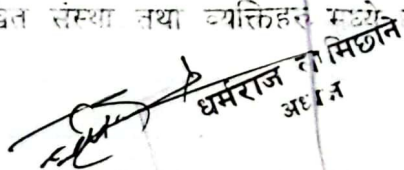 संस्था तथा व्यक्तिहरु मध्ये
धर्मराज तामिछाने
अध्यक्ष